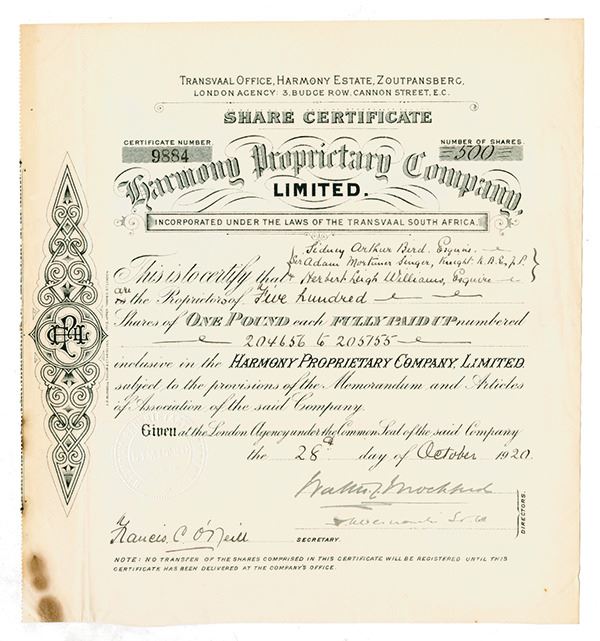 TRANSVAAL OFFICE, HARMONY ESTATE, ZOUTPANSBERG,
LONDON AGENCY: 3, BUDGE ROW, CANNON STREET, E.C.
SHARE CERTIFICATE
CERTIFICATE NUMBER
9884
NUMBER OF SHARES
500
Harmony Proprietary Company,
LIMITED.
INCORPORATED UNDER THE LAWS OF THE TRANSVAAL SOUTH AFRICA.
Sidney Arthur Bird, Esquire
Sir Adam Mortimer Singer, Knight K.B.E., J.P.
This is to certify that Herbert Leigh Williams, Esquire
are the Proprietors of Five hundred
Shares of ONE POUND each FULLY PAID UP numbered
204656 to 205155
inclusive in the HARMONY PROPRIETARY COMPANY, LIMITED
subject to the provisions of the Memorandum and Articles
of Association of the said Company.
Given at the London Agency under the Common Seal of the said Company
the 28th day of October 1920.
DIRECTORS.
Francis C. O'Neill
SECRETARY.
NOTE: NO TRANSFER OF THE SHARES COMPRISED IN THIS CERTIFICATE WILL BE REGISTERED UNTIL THIS
CERTIFICATE HAS BEEN DELIVERED AT THE COMPANY'S OFFICE.